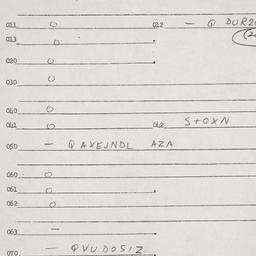 011 0 012 — Q DUR20
013 0
020 0
030 0
040 0
041 0 042 S+OXN
050 — QAXEJNDL AZA
060 0
061 0
062 0
063 —
070 — QVUDOSIZ